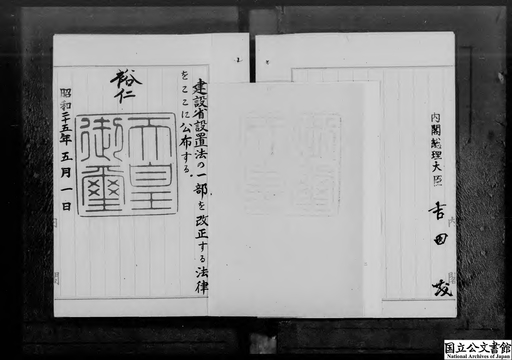 建設省設置法の一部を改正する法律
をここに公布する。
裕仁
天皇
御璽
昭和二十五年五月一日
内閣総理大臣 吉田茂
国立公文書館
National Archives of Japan